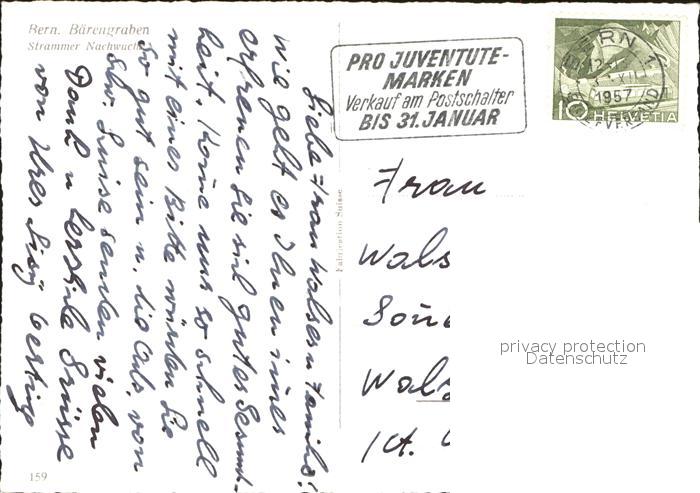 Bern. Bärengraben
Strammer Nachwuchs
PRO JUVENTUTE-
MARKEN
Verkauf am Postschalter
BIS 31. JANUAR
BERN 1
XII
1957
10 HELVETIA
Liebe Frau Walser u Familie!
wie geht es Ihnen immer
erfreuen Sie sich guter Gesund-
heit. Komme nur so schnell
mit einer Bitte würden Sie
so gut sein u. die von
Luise senden vielen
Dank u herzliche Grüsse
von Ihrer
Fabrication Suisse
Frau
Wals
Wal
Kt.
privacy protection
Datenschutz
159